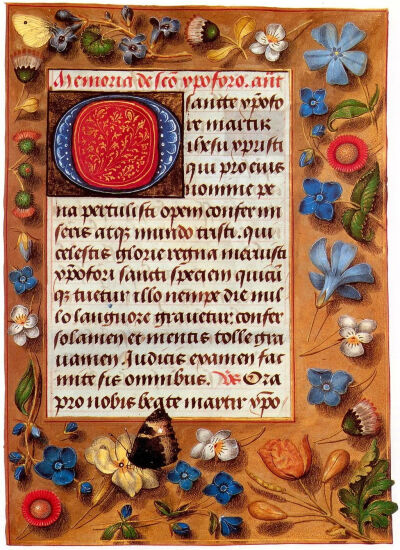 Memoria de scō xpoforo. an̄t
O sancte xpofo
re martir
ihesu xpristi
qui pro eius
nomine pe
na pertulisti opem confer mi
seris atqꝫ mundo tristi. qui
celestis glorie regna meruisti
xpofori sancti speciem quicū
qꝫ tuetur illo nempe die nul
lo languore grauetur: confer
solamen et mentis tolle gra
uamen Iudicis examen fac
mite sis omnibus. Vs Ora
pro nobis beate martir xpo